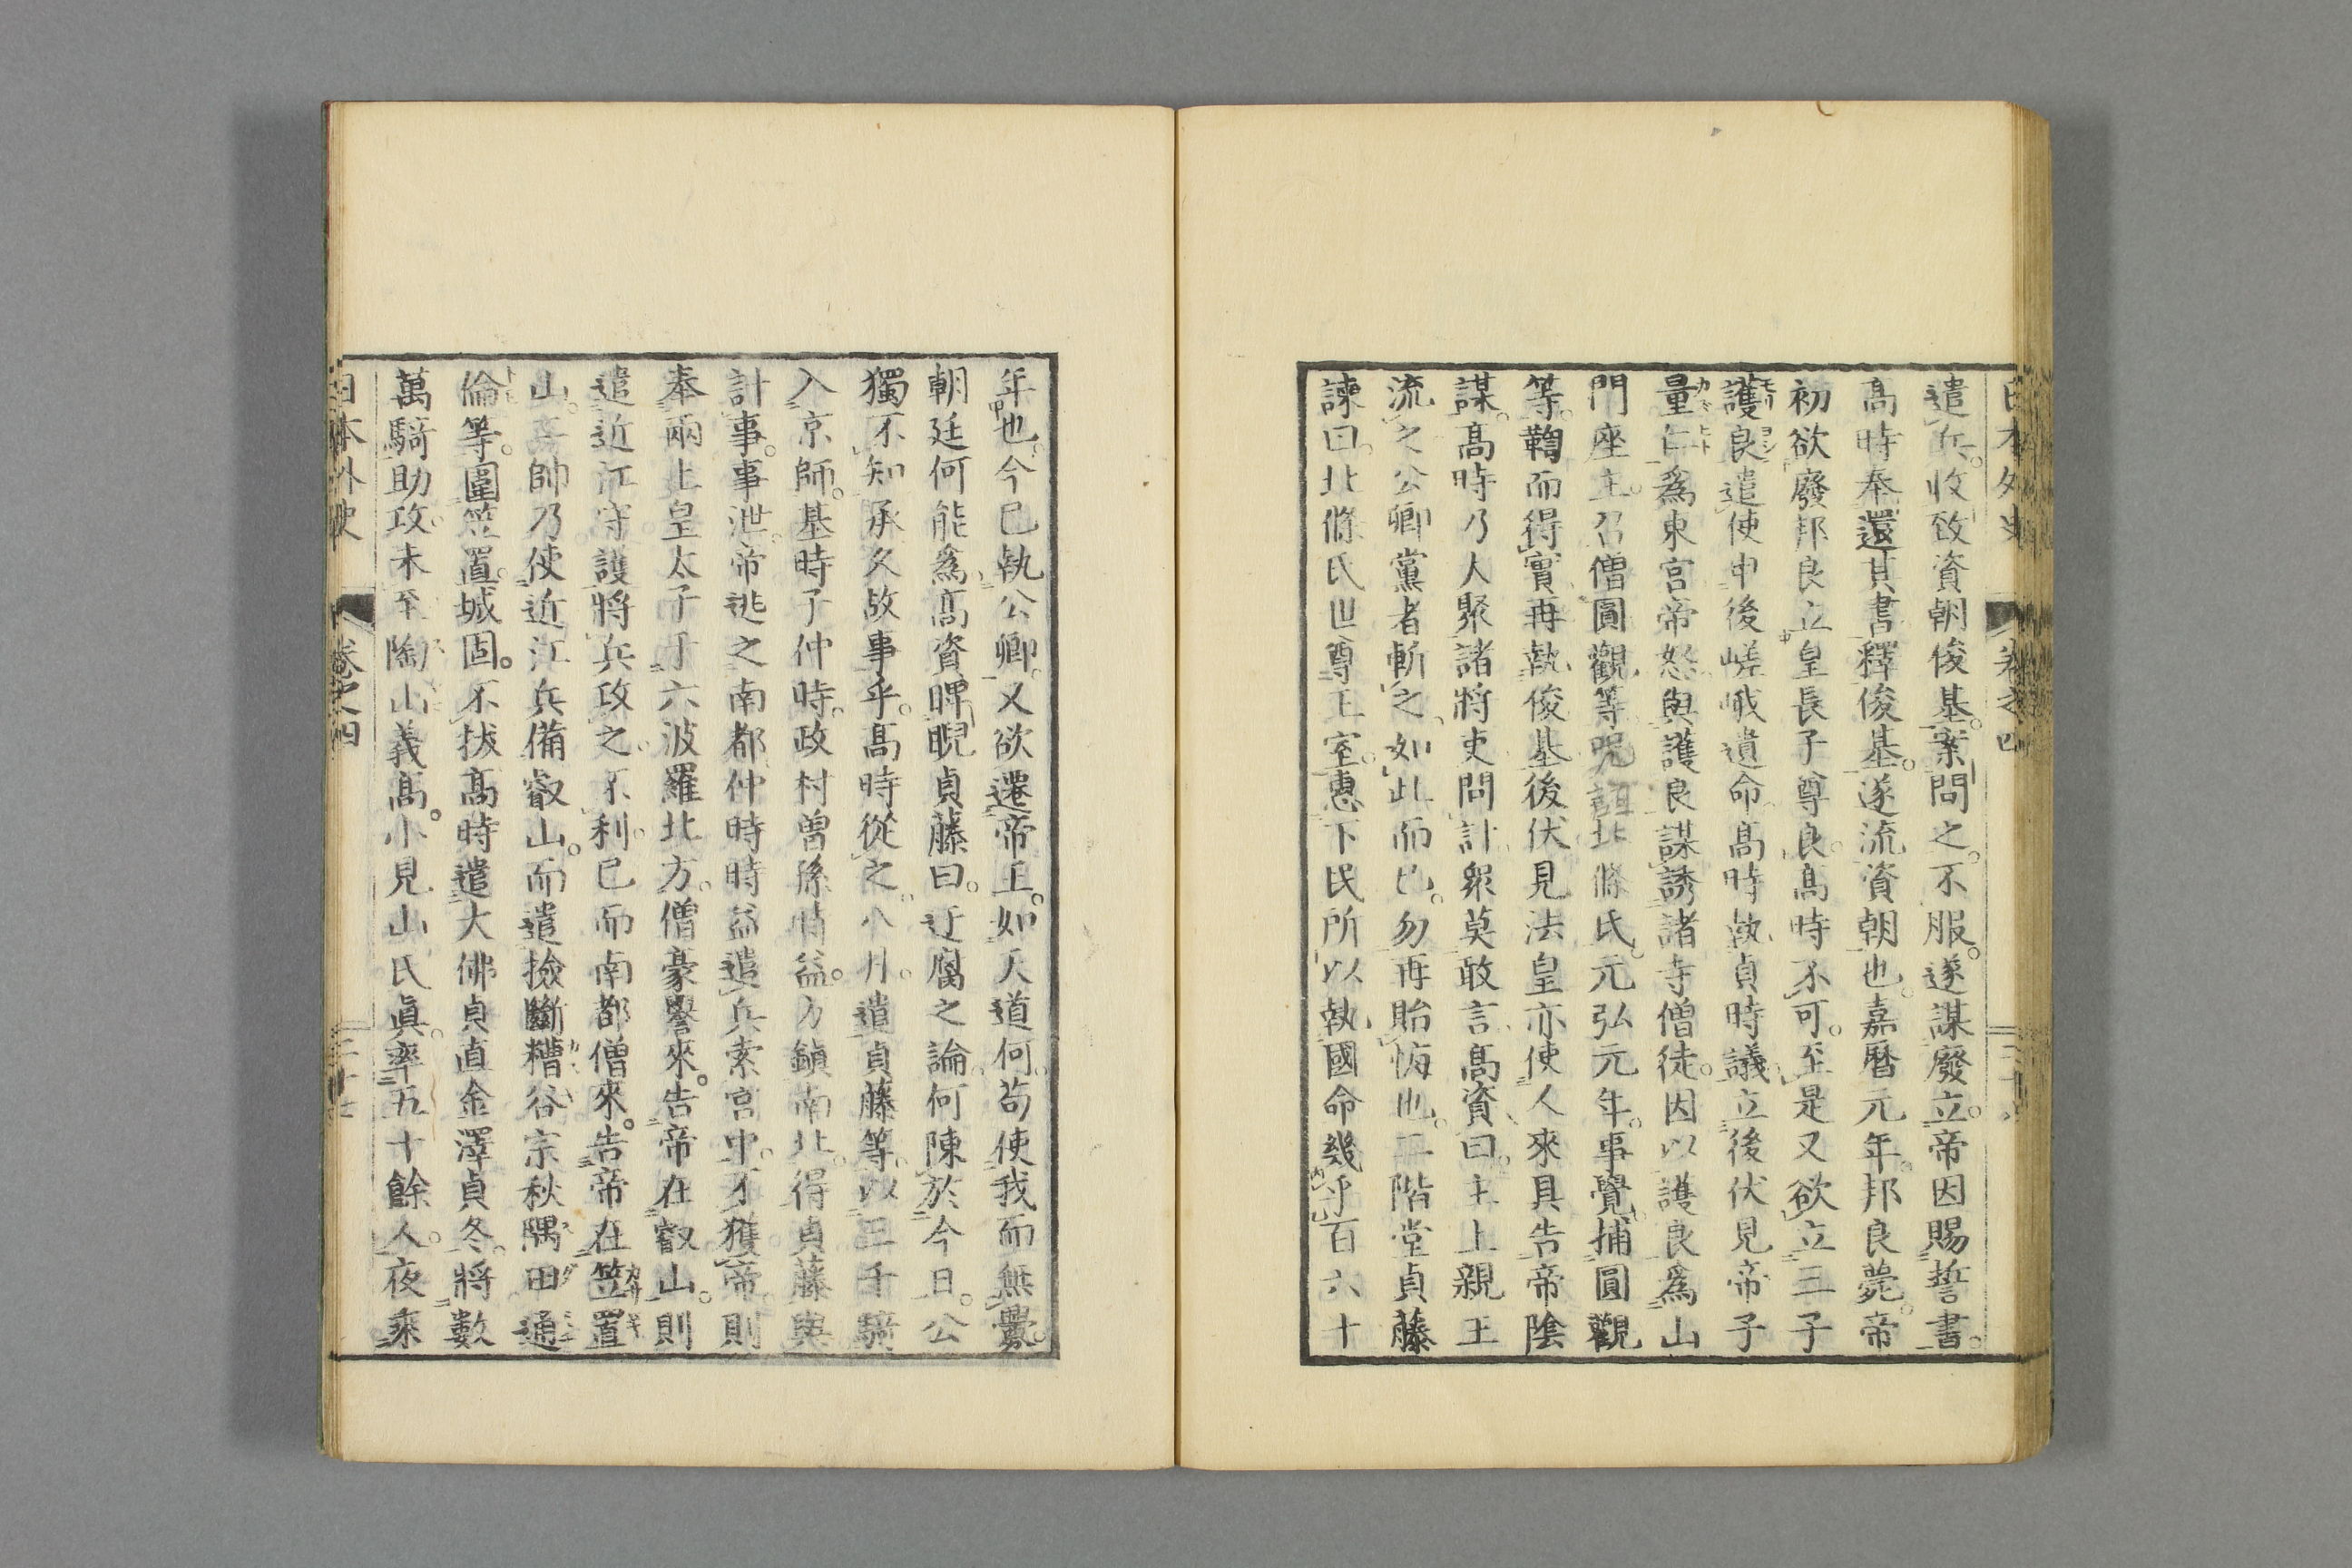 日本外史 卷之四
遣兵收致資朝俊基案問之不服遂謀廢立帝因賜誓書
高時奉還其書釋俊基遂流資朝也嘉曆元年邦良薨帝
初欲廢邦良立皇長子尊良高時不可至是又欲立三子
護良遣使申後嵯峨遺命高時執貞時議立後伏見帝子
量仁爲東宮帝怒與護良謀誘諸寺僧徒因以護良爲山
門座主召僧圓觀等呪詛北條氏元弘元年事覺捕圓觀
等鞫而得實再執俊基後伏見法皇亦使人來具告帝陰
謀高時乃大聚諸將吏問計衆莫敢言高資曰主上親王
流之公卿黨者斬之如此而已勿再貽悔也二階堂貞藤
諫曰北條氏世尊王室惠下民所以執國命幾乎百六十
年也今已執公卿又欲遷帝王如天道何苟使我而無釁
朝廷何能爲高資睥睨貞藤曰迂腐之論何陳於今日公
獨不知承久故事乎高時從之八月遣貞藤等以三千騎
入京師基時子仲時政村曾孫時益方鎭南北得貞藤與
計事事泄帝逃之南都仲時時益遣兵索宮中不獲帝則
奉兩上皇太子于六波羅北方僧豪譽來告帝在叡山則
遣近江守護將兵攻之不利已而南都僧來告帝在笠置
山二帥乃使近江兵備叡山而遣撿斷糟谷宗秋隅田通
倫等圍笠置城固不拔高時遣大佛貞直金澤貞冬將數
萬騎助攻未至陶山義高小見山氏眞率五十餘人夜乘
日本外史 卷之四 二十七